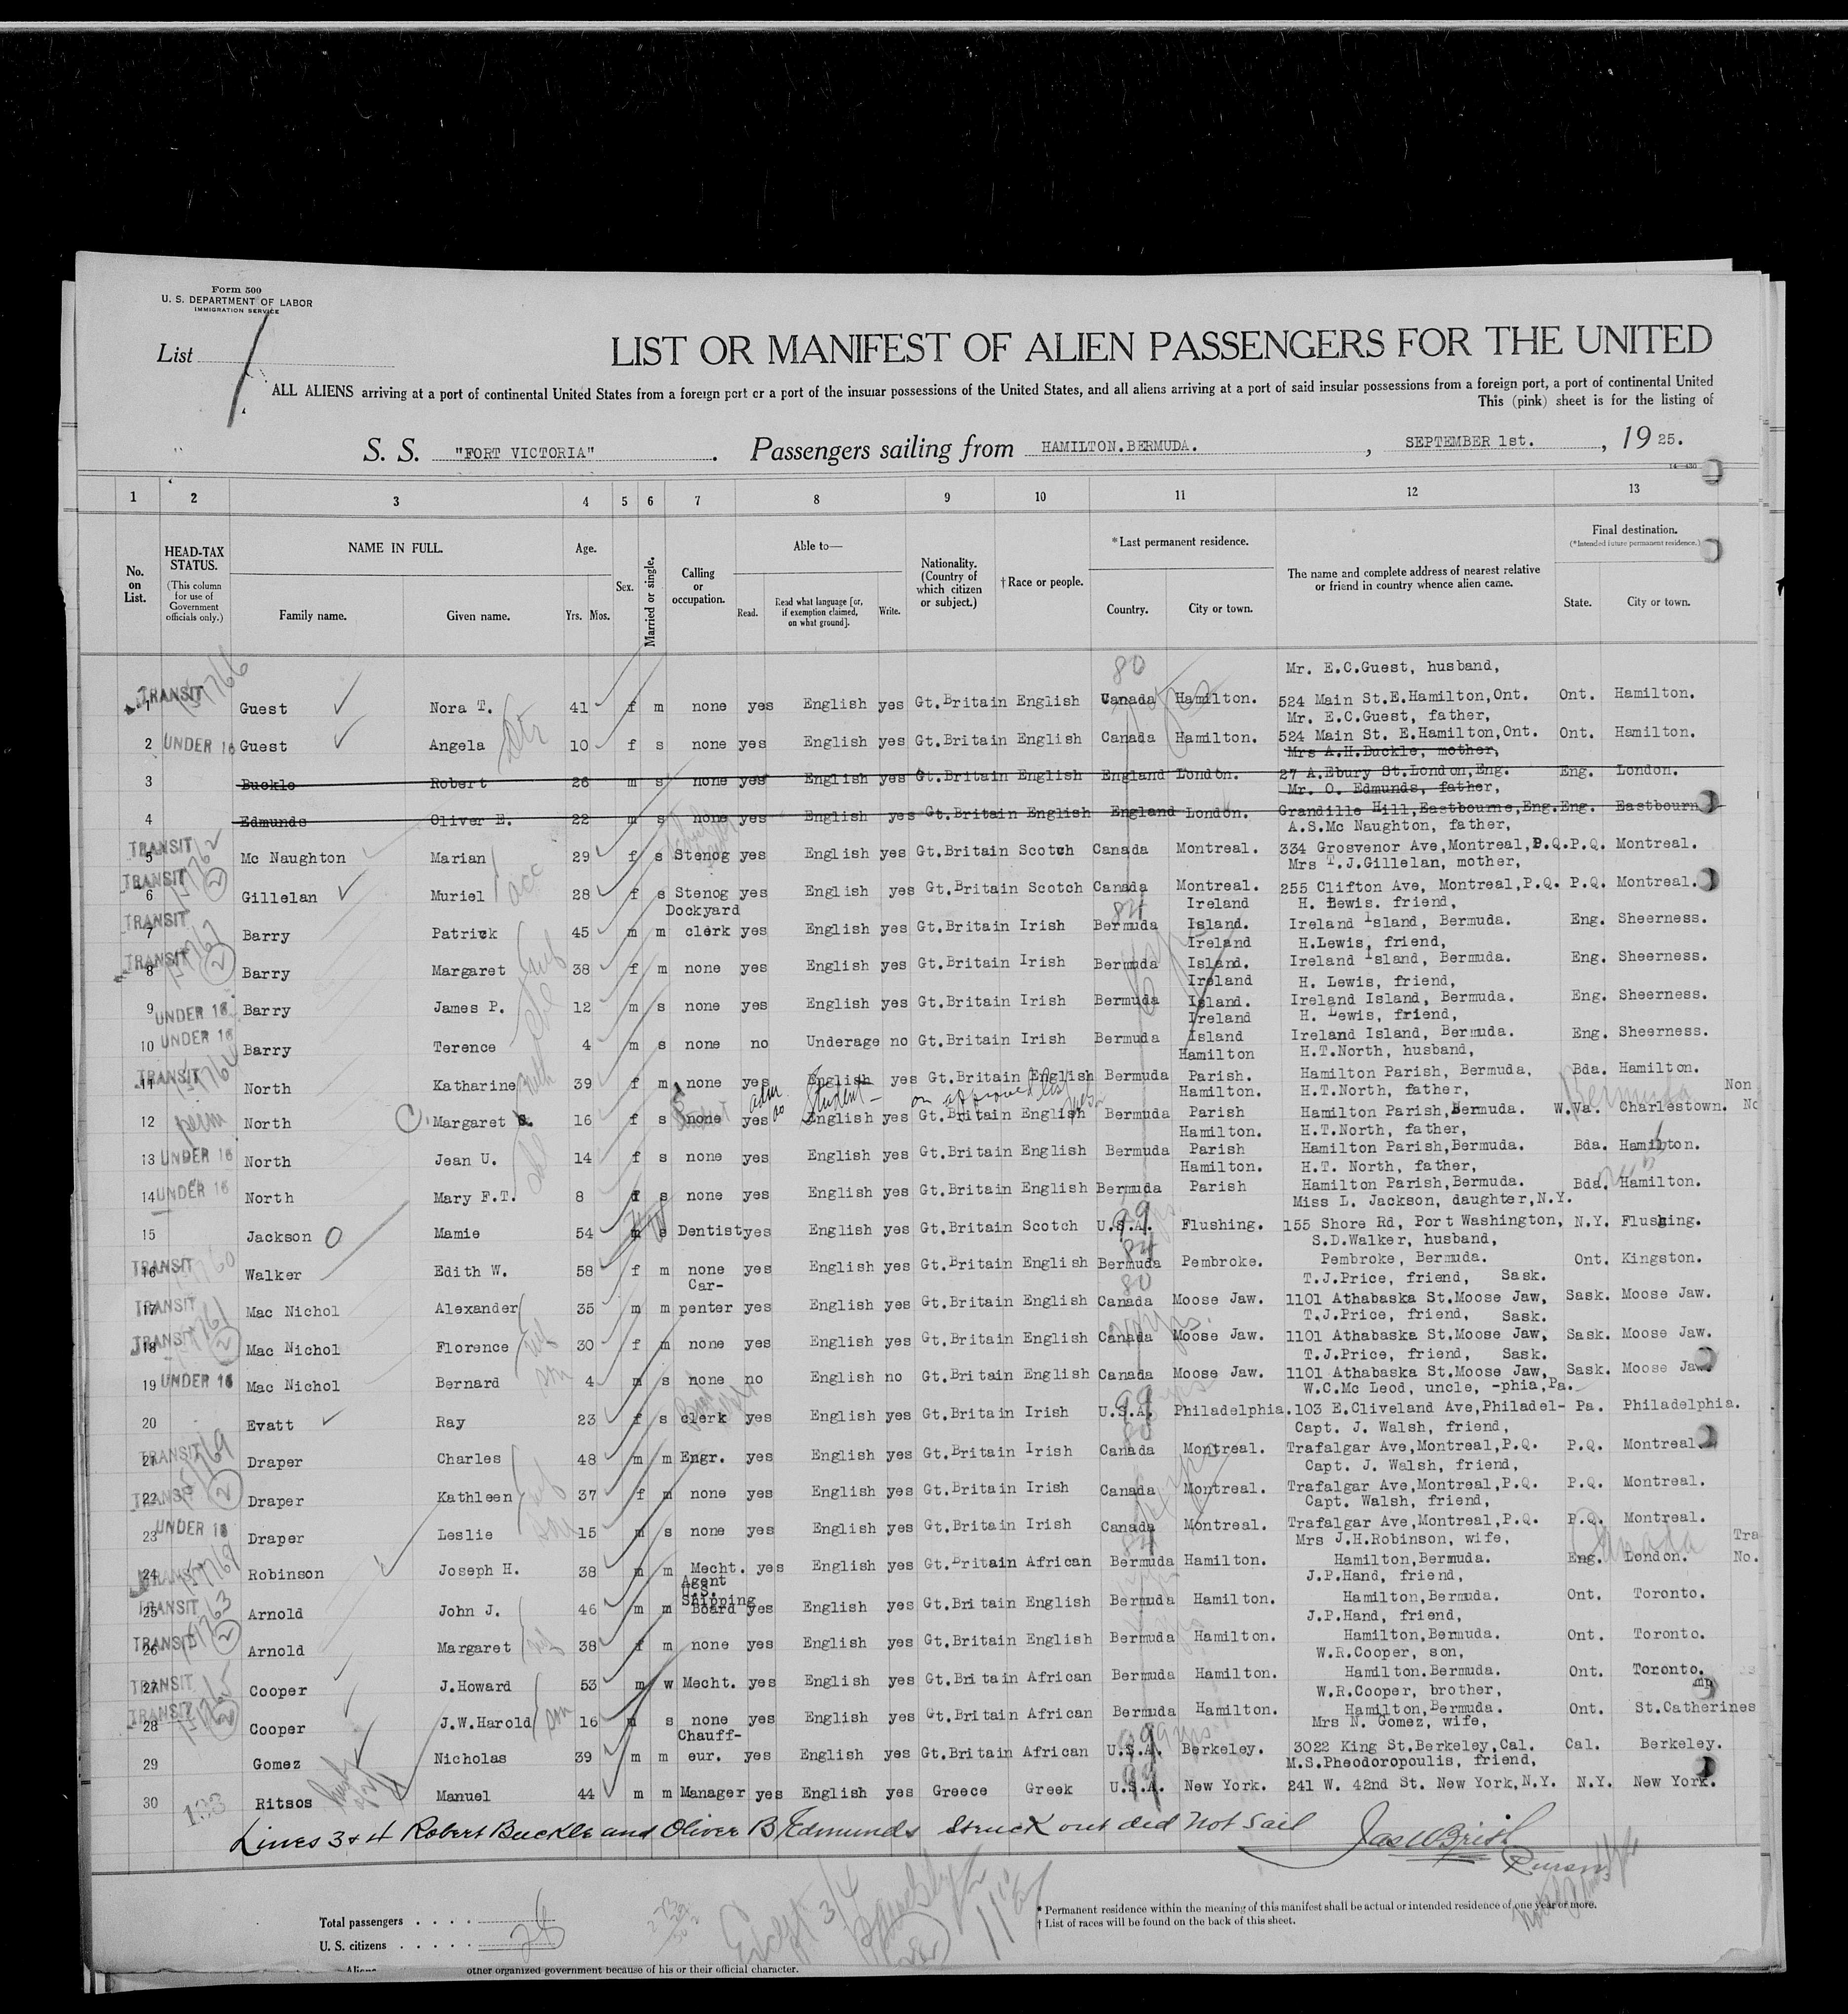 Form 500
U. S. DEPARTMENT OF LABOR
IMMIGRATION SERVICE
List 1
LIST OR MANIFEST OF ALIEN PASSENGERS FOR THE UNITED
ALL ALIENS arriving at a port of continental United States from a foreign port or a port of the insular possessions of the United States, and all aliens arriving at a port of said insular possessions from a foreign port, a port of continental United
This (pink) sheet is for the listing of
S. S. "FORT VICTORIA". Passengers sailing from HAMILTON.BERMUDA. , SEPTEMBER 1st. , 1925.
14—430
1 2 3 4 5 6 7 8 9 10 11 12 13
No. on List. HEAD-TAX STATUS. (This column for use of Government officials only.) NAME IN FULL. Family name. Given name. Age. Yrs. Mos. Sex. Married or single. Calling or occupation. Able to— Read. Read what language [or, if exemption claimed, on what ground]. Write. Nationality. (Country of which citizen or subject.) † Race or people. * Last permanent residence. Country. City or town. The name and complete address of nearest relative or friend in country whence alien came. Final destination. (*Intended future permanent residence.) State. City or town.
80 Mr. E.C.Guest, husband,
TRANSIT 1 Guest Nora T. 41 f m none yes English yes Gt.Britain English Canada Hamilton. 524 Main St.E.Hamilton,Ont. Ont. Hamilton.
Mr. E.C.Guest, father,
2 UNDER 16 Guest Angela 10 f s none yes English yes Gt.Britain English Canada Hamilton. 524 Main St. E.Hamilton,Ont. Ont. Hamilton.
Mrs A.H.Buckle, mother,
3 Buckle Robert 26 m s none yes English yes Gt.Britain English England London. 27 A.Ebury St.London,Eng. Eng. London.
Mr. O. Edmunds, father,
4 Edmunds Oliver E. 22 m s none yes English yes Gt.Britain English England London. Grandille Hill,Eastbourne,Eng. Eng. Eastbourn
A.S.Mc Naughton, father,
TRANSIT 5 Mc Naughton Marian 29 f s Stenog yes English yes Gt.Britain Scotch Canada Montreal. 334 Grosvenor Ave,Montreal,P.Q. P.Q. Montreal.
Mrs T.J.Gillelan, mother,
TRANSIT 6 Gillelan Muriel 28 f s Stenog yes English yes Gt.Britain Scotch Canada Montreal. 255 Clifton Ave, Montreal,P.Q. P.Q. Montreal.
Dockyard 84 Ireland H. Lewis. friend,
TRANSIT 7 Barry Patrick 45 m m clerk yes English yes Gt.Britain Irish Bermuda Island. Ireland Island, Bermuda. Eng. Sheerness.
Ireland H.Lewis, friend,
TRANSIT 8 Barry Margaret 38 f m none yes English yes Gt.Britain Irish Bermuda Island. Ireland Island, Bermuda. Eng. Sheerness.
Ireland H. Lewis, friend,
9 UNDER 16 Barry James P. 12 m s none yes English yes Gt.Britain Irish Bermuda Island. Ireland Island, Bermuda. Eng. Sheerness.
Ireland H. Lewis, friend,
10 UNDER 16 Barry Terence 4 m s none no Underage no Gt.Britain Irish Bermuda Island Ireland Island, Bermuda. Eng. Sheerness.
Hamilton H.T.North, husband,
TRANSIT 11 North Katharine 39 f m none yes English yes Gt.Britain English Bermuda Parish. Hamilton Parish, Bermuda, Bda. Hamilton.
adm. Student — on approved list Hamilton. H.T.North, father, Bermuda Non
12 perm North Margaret 16 f s none yes English yes Gt.Britain English Bermuda Parish Hamilton Parish,Bermuda. W.Va. Charlestown. No
Hamilton. H.T.North, father,
13 UNDER 16 North Jean U. 14 f s none yes English yes Gt.Britain English Bermuda Parish Hamilton Parish,Bermuda. Bda. Hamilton.
Hamilton. H.T. North, father,
14 UNDER 16 North Mary F.T. 8 f s none yes English yes Gt.Britain English Bermuda Parish Hamilton Parish,Bermuda. Bda. Hamilton.
99 Miss L. Jackson, daughter,N.Y.
15 Jackson Mamie 54 s Dentist yes English yes Gt.Britain Scotch U.S.A. Flushing. 155 Shore Rd, Port Washington, N.Y. Flushing.
84 S.D.Walker, husband,
TRANSIT 16 Walker Edith W. 58 f m none yes English yes Gt.Britain English Bermuda Pembroke. Pembroke, Bermuda. Ont. Kingston.
Car- 80 T.J.Price, friend, Sask.
TRANSIT 17 Mac Nichol Alexander 35 m m penter yes English yes Gt.Britain English Canada Moose Jaw. 1101 Athabaska St.Moose Jaw, Sask. Moose Jaw.
T.J.Price, friend, Sask.
TRANSIT 18 Mac Nichol Florence 30 f m none yes English yes Gt.Britain English Canada Moose Jaw. 1101 Athabaska St.Moose Jaw, Sask. Moose Jaw.
T.J.Price, friend, Sask.
19 UNDER 16 Mac Nichol Bernard 4 m s none no English no Gt.Britain English Canada Moose Jaw. 1101 Athabaska St.Moose Jaw, Sask. Moose Jaw
99 W.C.Mc Leod, uncle, -phia,Pa.
20 Evatt Ray 23 f s clerk yes English yes Gt.Britain Irish U.S.A. Philadelphia. 103 E.Cliveland Ave,Philadel- Pa. Philadelphia.
80 Capt. J. Walsh, friend,
TRANSIT 21 Draper Charles 48 m m Engr. yes English yes Gt.Britain Irish Canada Montreal. Trafalgar Ave,Montreal,P.Q. P.Q. Montreal
Capt. J. Walsh, friend,
TRANSIT 22 Draper Kathleen 37 f m none yes English yes Gt.Britain Irish Canada Montreal. Trafalgar Ave,Montreal,P.Q. P.Q. Montreal.
Capt. Walsh, friend,
23 UNDER 16 Draper Leslie 15 m s none yes English yes Gt.Britain Irish Canada Montreal. Trafalgar Ave,Montreal,P.Q. P.Q. Montreal.
84 Mrs J.H.Robinson, wife, Canada Tra
TRANSIT 24 Robinson Joseph H. 38 m m Mecht. yes English yes Gt.Britain African Bermuda Hamilton. Hamilton,Bermuda. Eng. London. No.
Agent U.S. Shipping J.P.Hand, friend,
TRANSIT 25 Arnold John J. 46 m m Board yes English yes Gt.Britain English Bermuda Hamilton. Hamilton,Bermuda. Ont. Toronto.
J.P.Hand, friend,
TRANSIT 26 Arnold Margaret 38 f m none yes English yes Gt.Britain English Bermuda Hamilton. Hamilton,Bermuda. Ont. Toronto.
W.R.Cooper, son,
TRANSIT 27 Cooper J.Howard 53 m w Mecht. yes English yes Gt.Britain African Bermuda Hamilton. Hamilton.Bermuda. Ont. Toronto.
W.R.Cooper, brother,
TRANSIT 28 Cooper J.W.Harold 16 m s none yes English yes Gt.Britain African Bermuda Hamilton. Hamilton,Bermuda. Ont. St.Catherines
Chauff- 99 Mrs N. Gomez, wife,
29 Gomez Nicholas 39 m m eur. yes English yes Gt.Britain African U.S.A. Berkeley. 3022 King St.Berkeley,Cal. Cal. Berkeley.
99 M.S.Pheodoropoulis, friend,
30 Ritsos Manuel 44 m m Manager yes English yes Greece Greek U.S.A. New York. 241 W. 42nd St. New York,N.Y. N.Y. New York.
Lines 3 & 4 Robert Buckle and Oliver B Edmunds struck out did not sail
Purser
Total passengers . . . .
U. S. citizens . . . . .
Aliens
other organized government because of his or their official character.
* Permanent residence within the meaning of this manifest shall be actual or intended residence of one year or more.
† List of races will be found on the back of this sheet.